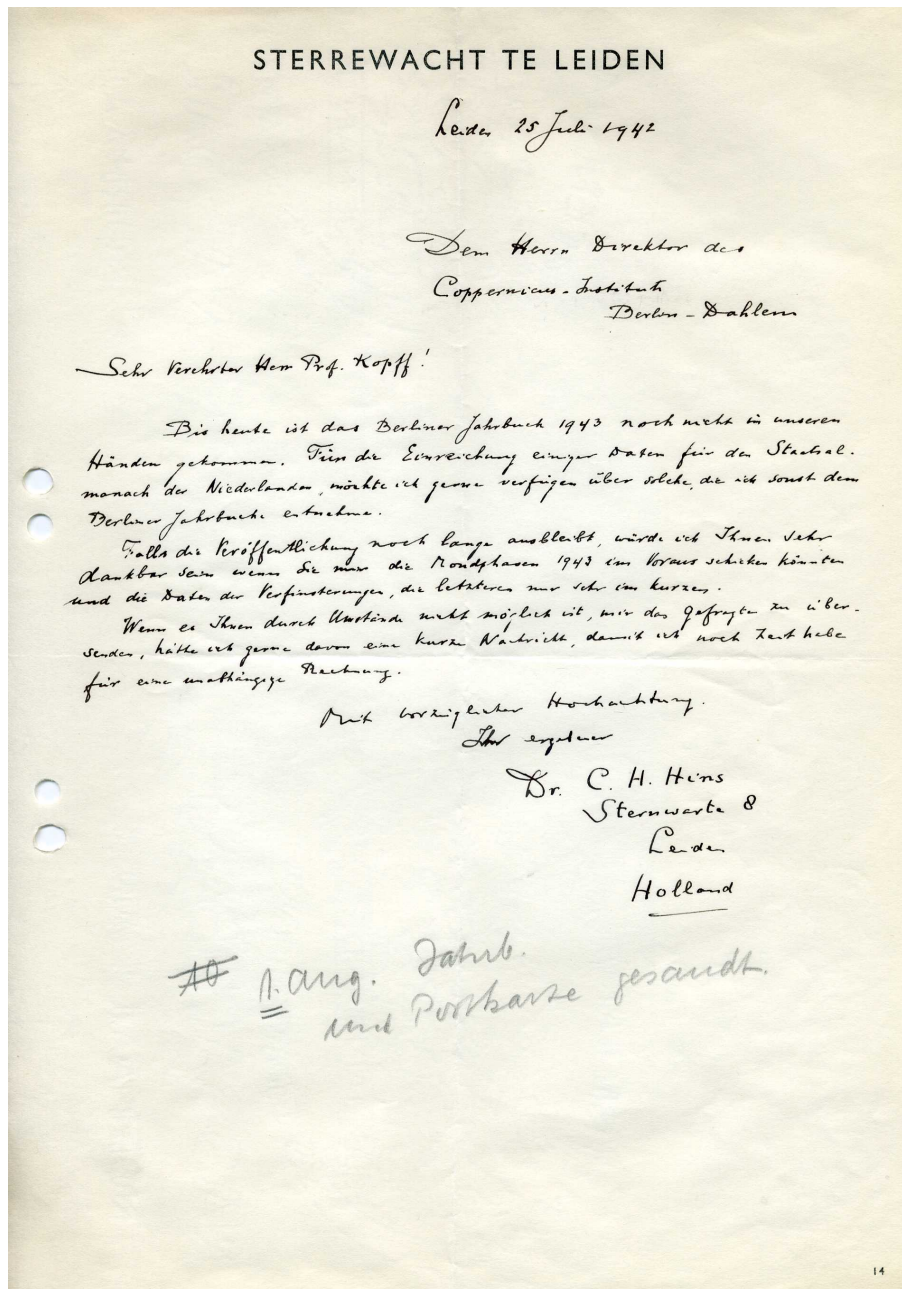 STERREWACHT TE LEIDEN
Leiden 25 Juli 1942
Dem Herrn Direktor des
Coppernicus-Instituts
Berlin-Dahlem
Sehr Verehrter Herr Prof. Kopff!
Bis heute ist das Berliner Jahrbuch 1943 noch nicht in unseren
Händen gekommen. Für die Einreichung einiger Daten für den Staatsal-
manach der Niederlanden, möchte ich gerne verfügen über solche, die ich sonst dem
Berliner Jahrbuche entnehme.
Falls die Veröffentlichung noch lange ausbleibt, würde ich Ihnen sehr
dankbar sein wenn Sie mir die Mondphasen 1943 im Voraus schicken könnten
und die Daten der Verfinsterungen, die letzteren nur sehr im kurzen.
Wenn es Ihnen durch Umstände nicht möglich ist, mir das Gefragte zu über-
senden, hätte ich gerne davon eine kurze Nachricht, damit ich noch Zeit habe
für eine unabhängige Rechnung.
Mit vorzüglicher Hochachtung.
Ihr ergebener
Dr. C. H. Hins
Sternwarte 8
Leiden
Holland
1. Aug. Jahrb.
und Postkarte gesandt.
14